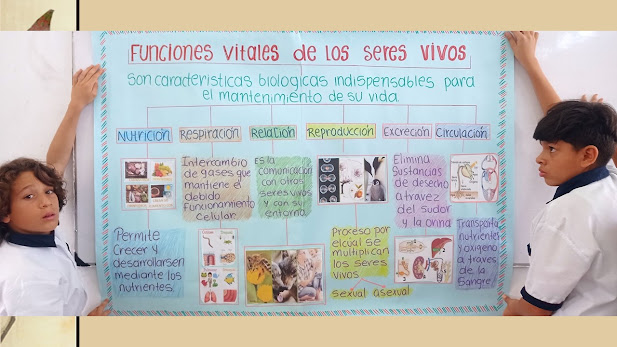 Funciones vitales de los seres vivos
Son características biologicas indispensables para
el mantenimiento de su vida.
Nutrición
Respiración
Relación
Reproducción
Excreción
Circulación
Intercambio
de gases que
mantiene el
debido
Funcionamiento
celular
Es la
comunicación
con otros
seres vivos
y con su
entorno
Elimina
sustancias
de desecho
a travez
del sudor
y la orina
Permite
Crecer y
desarrollarsen
mediante los
nutrientes.
Proceso por
el cual se
multiplican
los seres
vivos
sexual asexual
Transporta
nutrientes
y oxigeno
a través
de la
Sangre